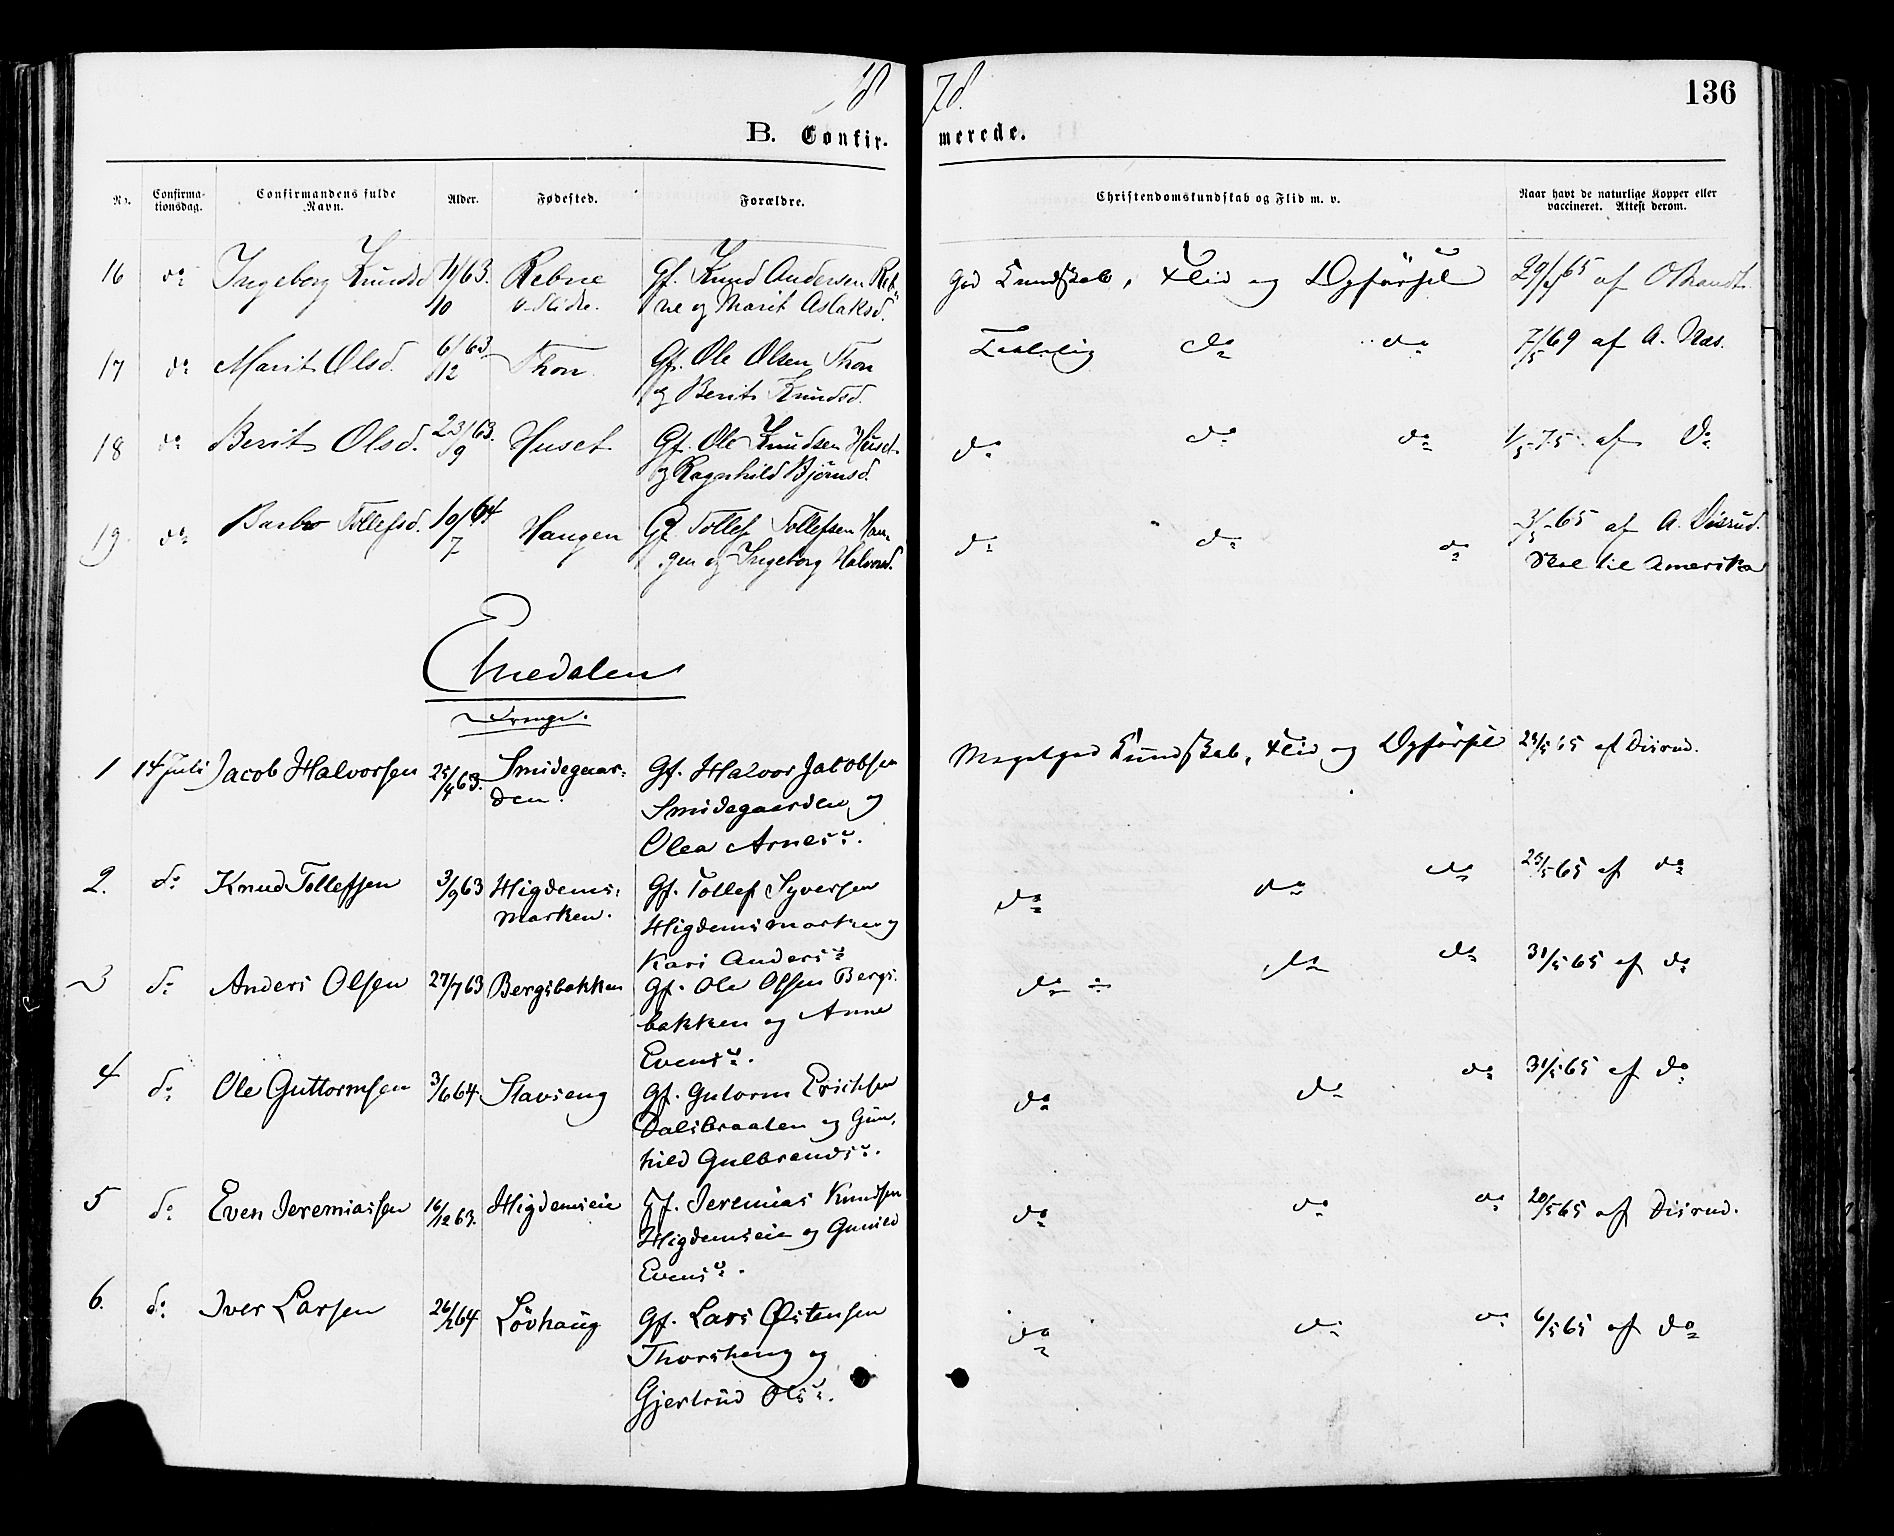 18 78.
136
B. Confir- merede.
No. Confirma-tionsdag. Confirmandens fulde Navn. Alder. Fødested. Forældre. Christendomskundskab og Flid m. v. Naar havt de naturlige Kopper eller vaccineret. Attest derom.
16 do Ingeborg Knudsd. 11/10 63. Rebne Gf. Knud Andersen Reb- God Kundskab, Flid og Opførsel 29/65 af O Brandt
ne og Marit Aslaksd.
17 do Marit Olsd. 6/12 63 Thon. Gf. Ole Olsen Thon Taalelig do do 7/5 69 af A. Næs.
og Berit Knudsd.
18 do Berit Olsd. 23/9 63. Huset Gf. Ole Knudsen Huset do do do 1/5 75 af do
og Ragnhild Bjørnsd.
19. do Barbro Tollefsd. 19/7 64 Haugen Gf. Tollef Tollefsen Hau- do do do 3/5 65 af A. Disrud.
gen og Ingeborg Halvorsd. Skal til Amerika
Etnedalen
Drenge.
1 14 Juli Jacob Halvorsen 25/4 63. Smidegaar- Gf. Halvor Jakobsen Megetgod Kundskab, Flid og Opførsel 25/5 65 af Disrud.
den. Smidegaarden og
Olea Arnesd.
2. do Knud Tollefsen 3/9 63 Høgdems- Gf. Tollef Syversen do do do 25/5 65 af do
marken. Høgdemsmarken og
Kari Andersd.
3 do Anders Olsen 27/7 63 Bergsbakken Gf. Ole Olsen Bergs- do ÷ do do 31/5 65 af do
bakken og Anne
Evensd.
4 do Ole Guttormsen 3/6 64 Stavseng Gf. Gutorm Erichsen do do do 31/5 65 af do
Dalsbraaten og Gun-
hild Gulbrandsd.
5 do Even Jeremiassen 16/12 63. Høgdemseie Gf. Jeremias Knudsen do do do 20/5 65 af Disrud.
Høgdemseie og Gunild
Evensd.
6. do Iver Larsen 26/2 64 Løvhaug Gf. Lars Østensen do do do 6/5 65 af do
Thorshaug og
Gjertrud Olsd.